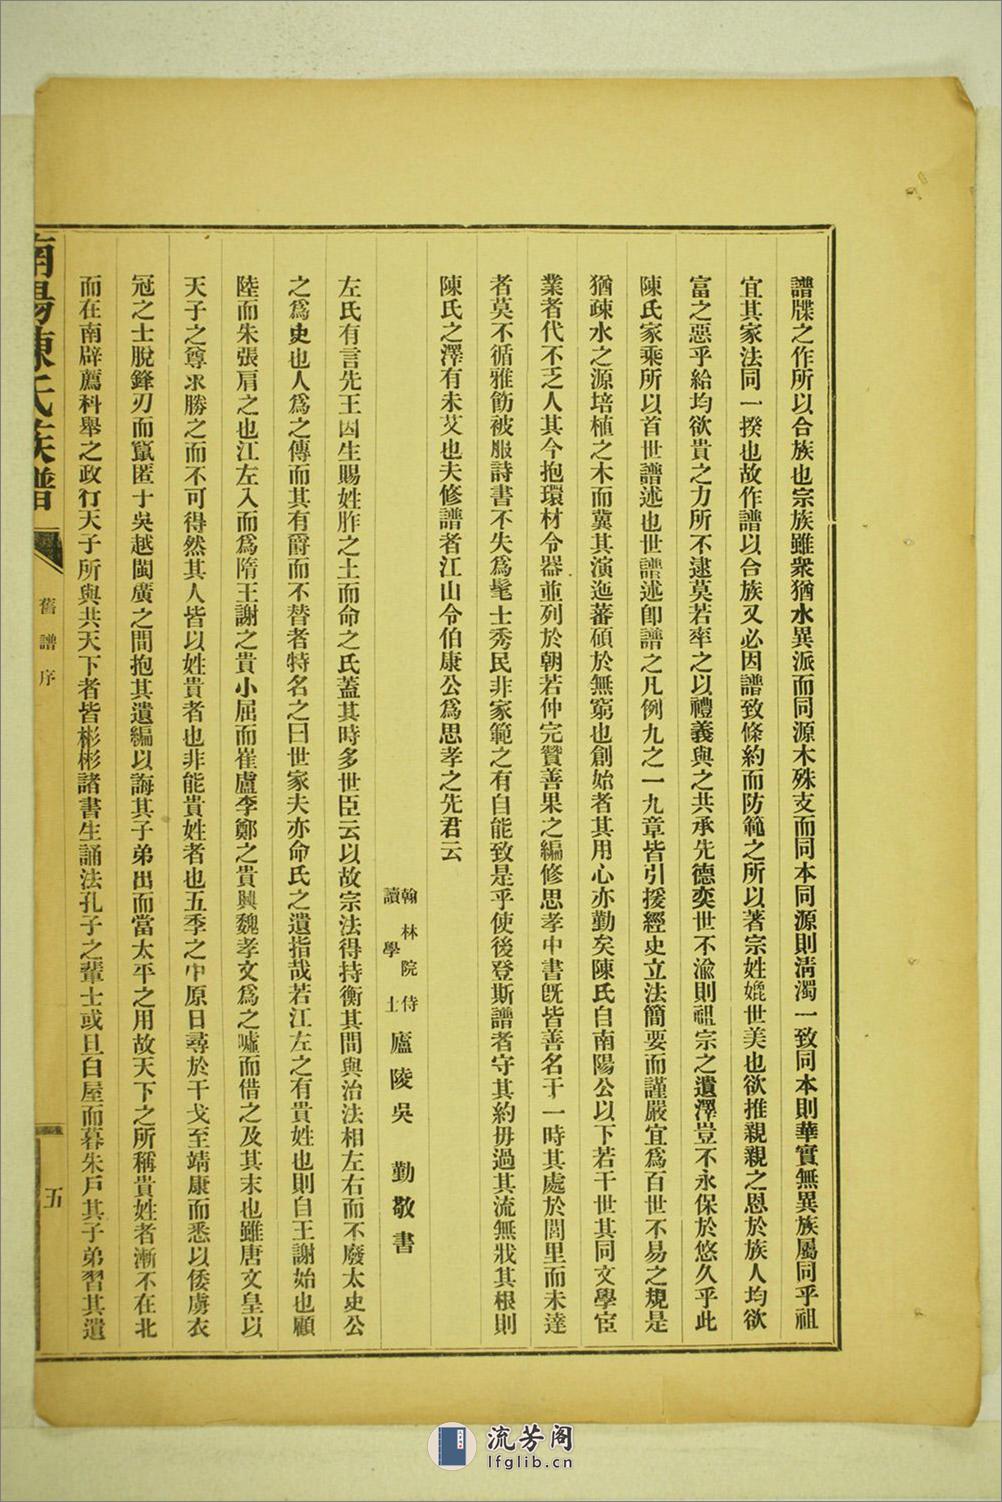 譜牒之作所以合族也宗族雖衆猶水異派而同源木殊支而同本同源則淸濁一致同本則華實無異族屬同乎祖
宜其家法同一揆也故作譜以合族又必因譜致條約而防範之所以著宗姓媲世美也欲推親親之恩於族人均欲
富之惡乎給均欲貴之力所不逮莫若率之以禮義與之共承先德奕世不渝則祖宗之遺澤豈不永保於悠久乎此
陳氏家乘所以首世譜述也世譜述卽譜之凡例九之一九章皆引援經史立法簡要而謹嚴宜爲百世不易之規是
猶疎水之源培植之木而冀其演迤蕃碩於無窮也創始者其用心亦勤矣陳氏自南陽公以下若干世其同文學宦
業者代不乏人其今抱環材令器並列於朝若仲完贊善果之編修思孝中書旣皆善名于一時其處於閭里而未達
者莫不循雅飭被服詩書不失爲髦士秀民非家範之有自能致是乎使後登斯譜者守其約毋過其流無戕其根則
陳氏之澤有未艾也夫修譜者江山令伯康公爲思孝之先君云
翰林院侍讀學士廬陵吳勤敬書
左氏有言先王因生賜姓胙之土而命之氏蓋其時多世臣云以故宗法得持衡其間與治法相左右而不廢太史公
之爲史也人爲之傳而其有爵而不替者特名之曰世家夫亦命氏之遺指哉若江左之有貴姓也則自王謝始也顧
陸而朱張肩之也江左入而爲隋王謝之貴小屈而崔盧李鄭之貴興魏孝文爲之噓而借之及其末也雖唐文皇以
天子之尊求勝之而不可得然其人皆以姓貴者也非能貴姓者也五季之中原日尋於干戈至靖康而悉以倭虜衣
冠之士脫鋒刃而竄匿于吳越閩廣之間抱其遺編以誨其子弟出而當太平之用故天下之所稱貴姓者漸不在北
而在南辟薦科舉之政行天子所與共天下者皆彬彬諸書生誦法孔子之輩士或旦白屋而暮朱戶其子弟習其遺
南陽陳氏族譜
舊譜序
五
流芳阁
lfglib.cn